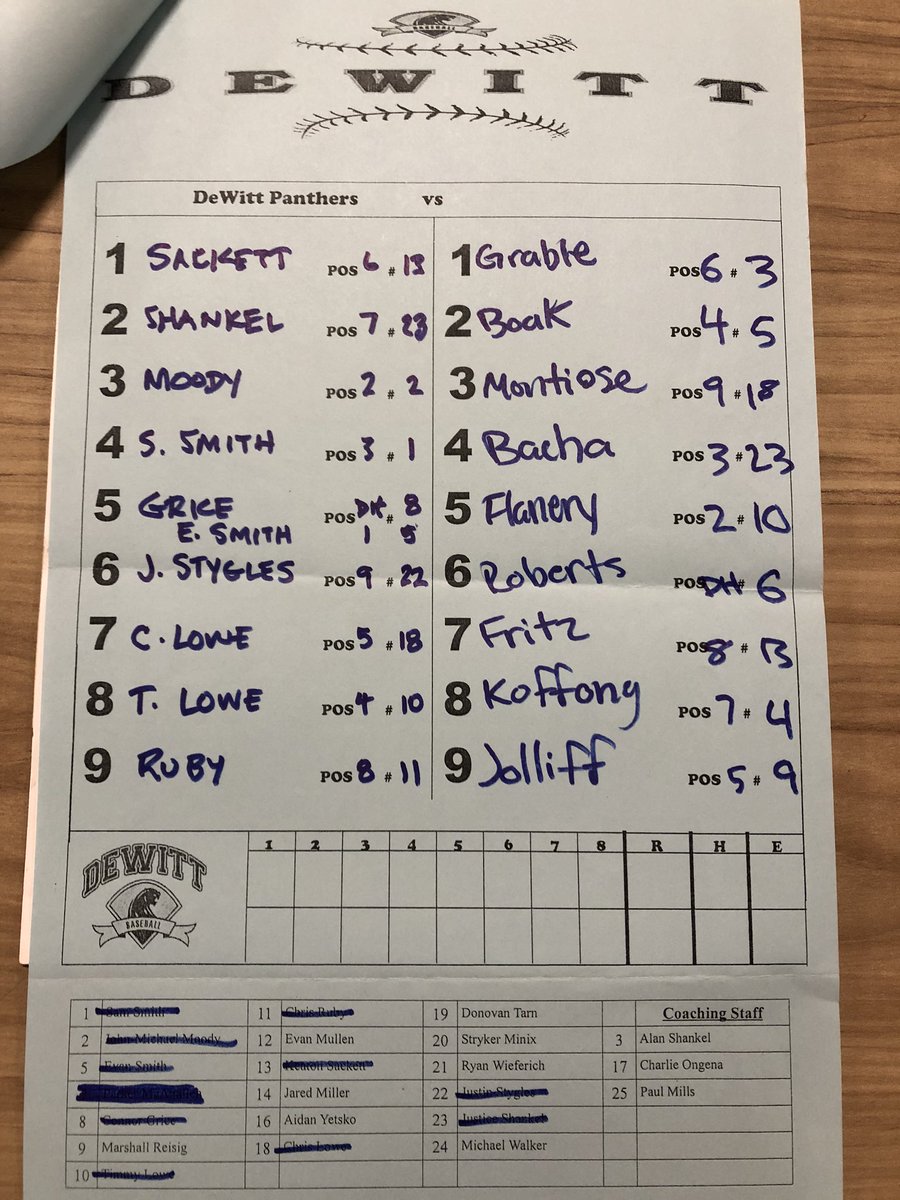 BASEBALL
DEWITT
DeWitt Panthers vs
1 SACKETT POS 6 # 13 1 Grable POS 6 # 3
2 SHANKEL POS 7 # 23 2 Boak POS 4 # 5
3 MOODY POS 2 # 2 3 Montiose POS 9 # 18
4 S. SMITH POS 3 # 1 4 Bacha POS 3 # 23
5 GRICE POS DH # 8 5 Flanery POS 2 # 10
E. SMITH 1 5
6 J. STYGLES POS 9 # 22 6 Roberts POS DH # 6
7 C. LOWE POS 5 # 18 7 Fritz POS 8 # 13
8 T. LOWE POS 4 # 10 8 Koffong POS 7 # 4
9 RUBY POS 8 # 11 9 Jolliff POS 5 # 9
DEWITT 1 2 3 4 5 6 7 8 R H E
BASEBALL
1 Sam Smith 11 Chris Ruby 19 Donovan Tarn Coaching Staff
2 John Michael Moody 12 Evan Mullen 20 Stryker Minix 3 Alan Shankel
5 Evan Smith 13 Keaton Sackett 21 Ryan Wieferich 17 Charlie Ongena
14 Jared Miller 22 Justin Stygles 25 Paul Mills
8 Connor Grice 16 Aidan Yetsko 23 Justice Shankel
9 Marshall Reisig 18 Chris Lowe 24 Michael Walker
10 Timmy Lowe